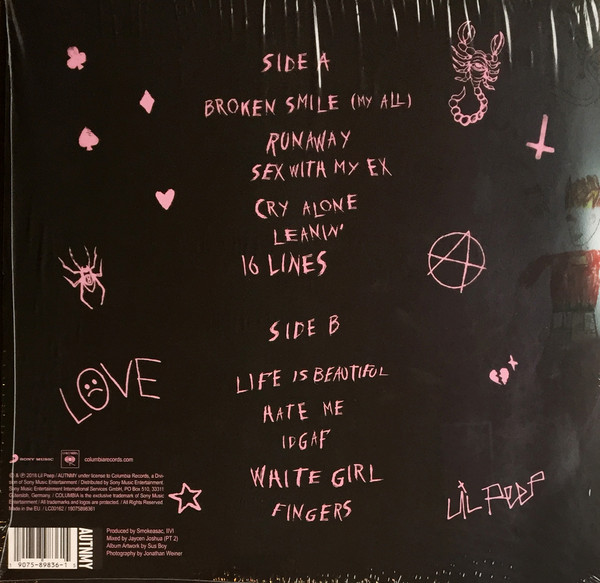 SIDE A
BROKEN SMILE (MY ALL)
RUNAWAY
SEX WITH MY EX
CRY ALONE
LEANIN'
16 LINES
SIDE B
LIFE IS BEAUTIFUL
HATE ME
IDGAF
WHITE GIRL
FINGERS
LOVE
LIL PEEP
SONY MUSIC
columbiarecords.com
℗ 2018 Lil Peep / AUTNMY under license to Columbia Records, a Divi-
sion of Sony Music Entertainment / Distributed by Sony Music Entertainment
Sony Music Entertainment International Services GmbH, PO Box 510, 33311
Gütersloh, Germany / COLUMBIA is the exclusive trademark of Sony Music
Entertainment / All trademarks and logos are protected. / All Rights Reserved
Made in the EU. / LC00162 / 19075898361
AUTNMY
9075-89836-1
Produced by Smokeasac, IIVI
Mixed by Jaycen Joshua (PT 2)
Album Artwork by Sus Boy
Photography by Jonathan Weiner